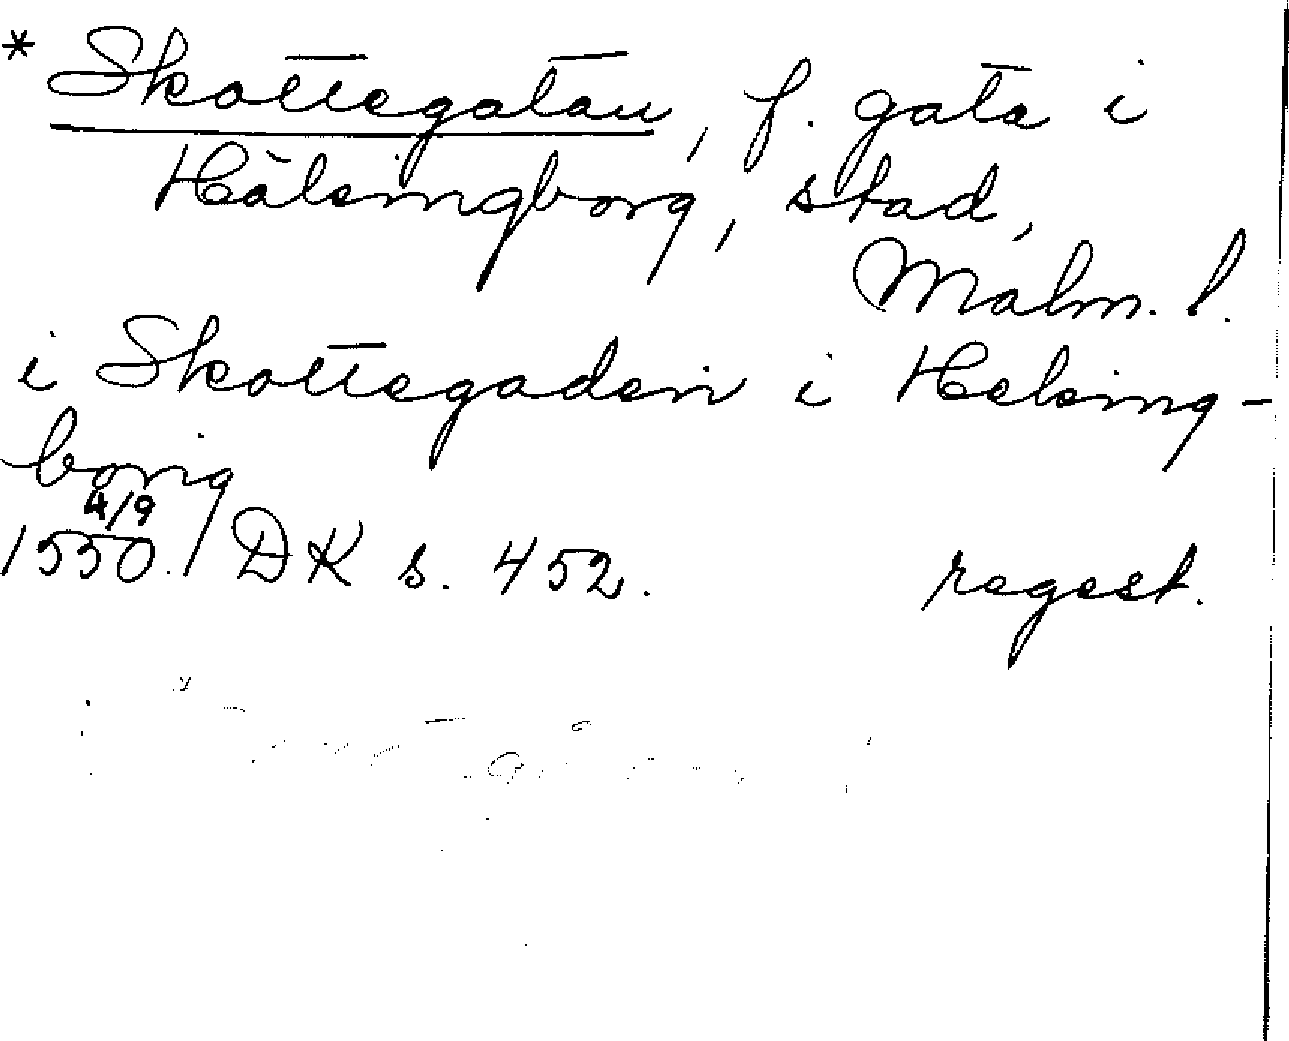 * Skottegatan, f. gata i
Hälsingborg, stad,
Malm. l.
i Skottegaden i Helsing-
borig
4/9
1550. DK s. 452. regest.